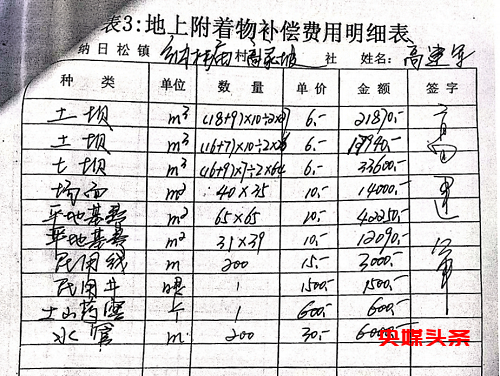 表3:地上附着物补偿费用明细表
纳日松镇 村 社 姓名:高建军
种类 单位 数量 单价 金额 签字
土坝 m³ 6.- 21870.-
土坝 m³ 6.-
土坝 m³ (16+9)×7÷2×64 6.- 33600.-
场面 m² 40×35 10.- 14000.-
平地基 m² 65×65 10.- 42250.-
平地基 m² 31×39 10.- 12090.-
民用线 m 200 15.- 3000.-
民用井 1 1500.- 1500.-
土山药窖 个 1 600.- 600.-
水管 m 200 30.- 6000.-
央媒头条